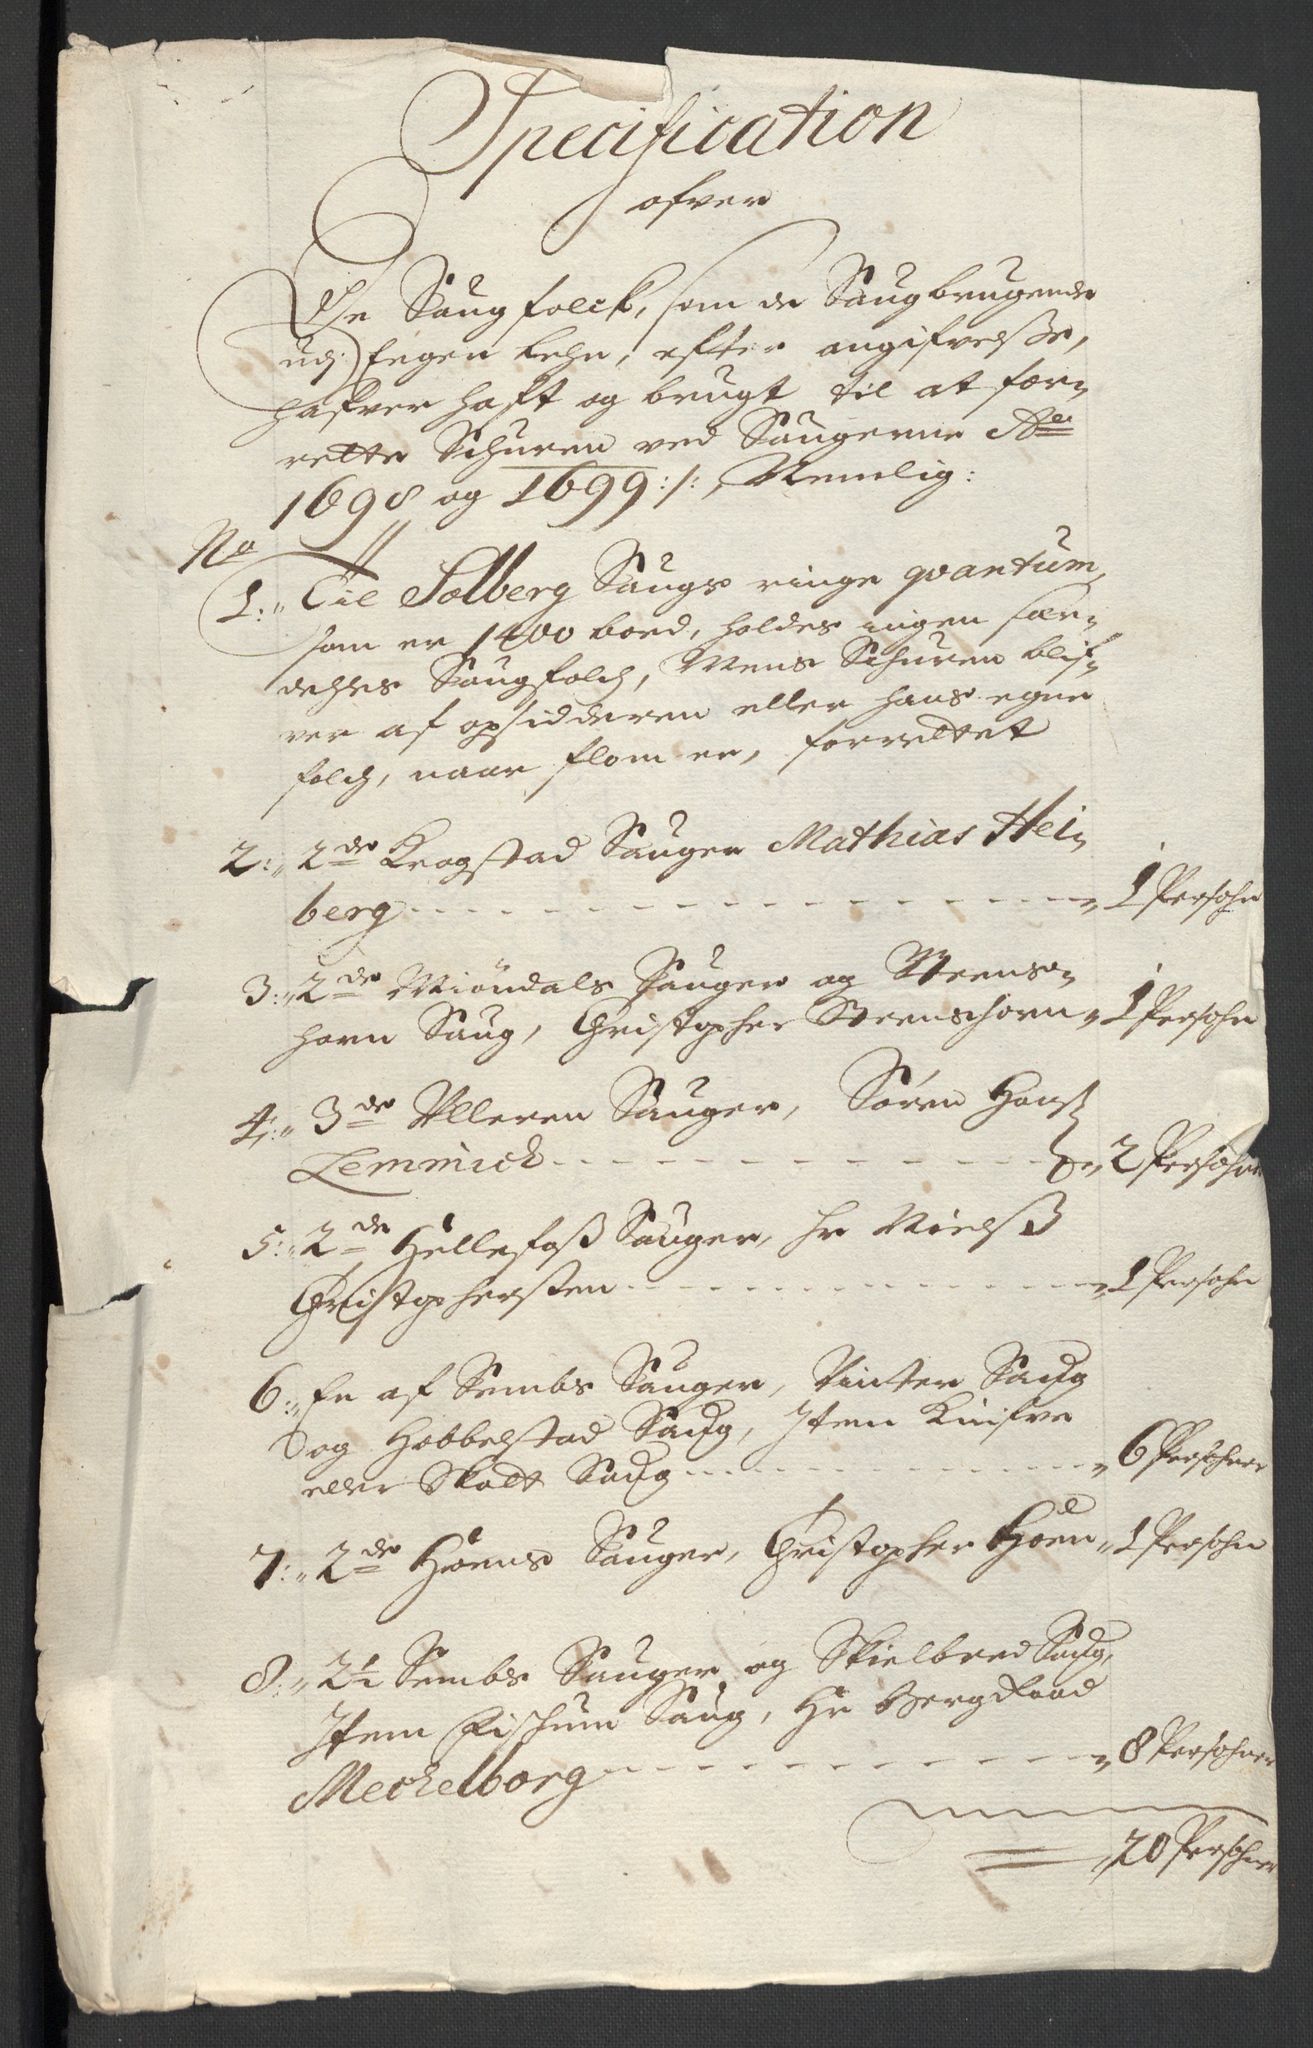 Specification
ofver
De Saugfolck, som de Saugbrugende
udj Eegen Lehn, efter angifvelsse,
hafver haft og brugt til at for-
rette Schuren ved Saugerne Ao
1698 og 1699:/: Nemlig:
No
1:,, Til Solberg Saugs ringe qvantum,
som er 1400 bord, holdes ingen sær-
dehles Saugfolch, Mens Schuren blif-
ver af opsidderen eller hans egne
folch, naar flom er, forrettet
2:,, 2de Krogstad Sauger Mathias Hei-
berg ,, 1 Persohn
3:,, 2de Miöndals Sauger og Steens-
horn Saug, Christopher Steenshorn ,, 1 Persohn
4:,, 3de Ulleren Sauger, Søren Hanß
Lemmich ,, 2 Persohner
5:,, 2de Hellefoß Sauger, Hr Nielß
Christophersten ,, 1 Persohn
6:,, En af Sembs Sauger, Vinter Saug
og Hobbelstad Saug, Item Knifve
eller Skalt Saug ,, 6 Persohner
7:,, 2de Hoens Sauger, Christopher Hoen ,, 1 Persohn
8:,, 2½ Sembs Sauger og Skielbred Saug,
Item Fischum Saug, Hr Bergraad
Mechelborg ,, 8 Persohner
,, 20 Persohner